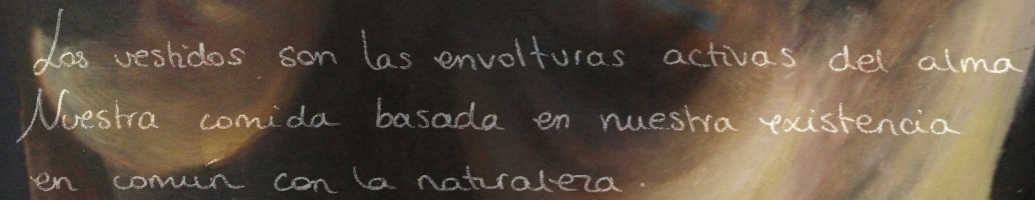 Los vestidos son las envolturas activas del alma
Nuestra comida basada en nuestra existencia
en común con la naturaleza.